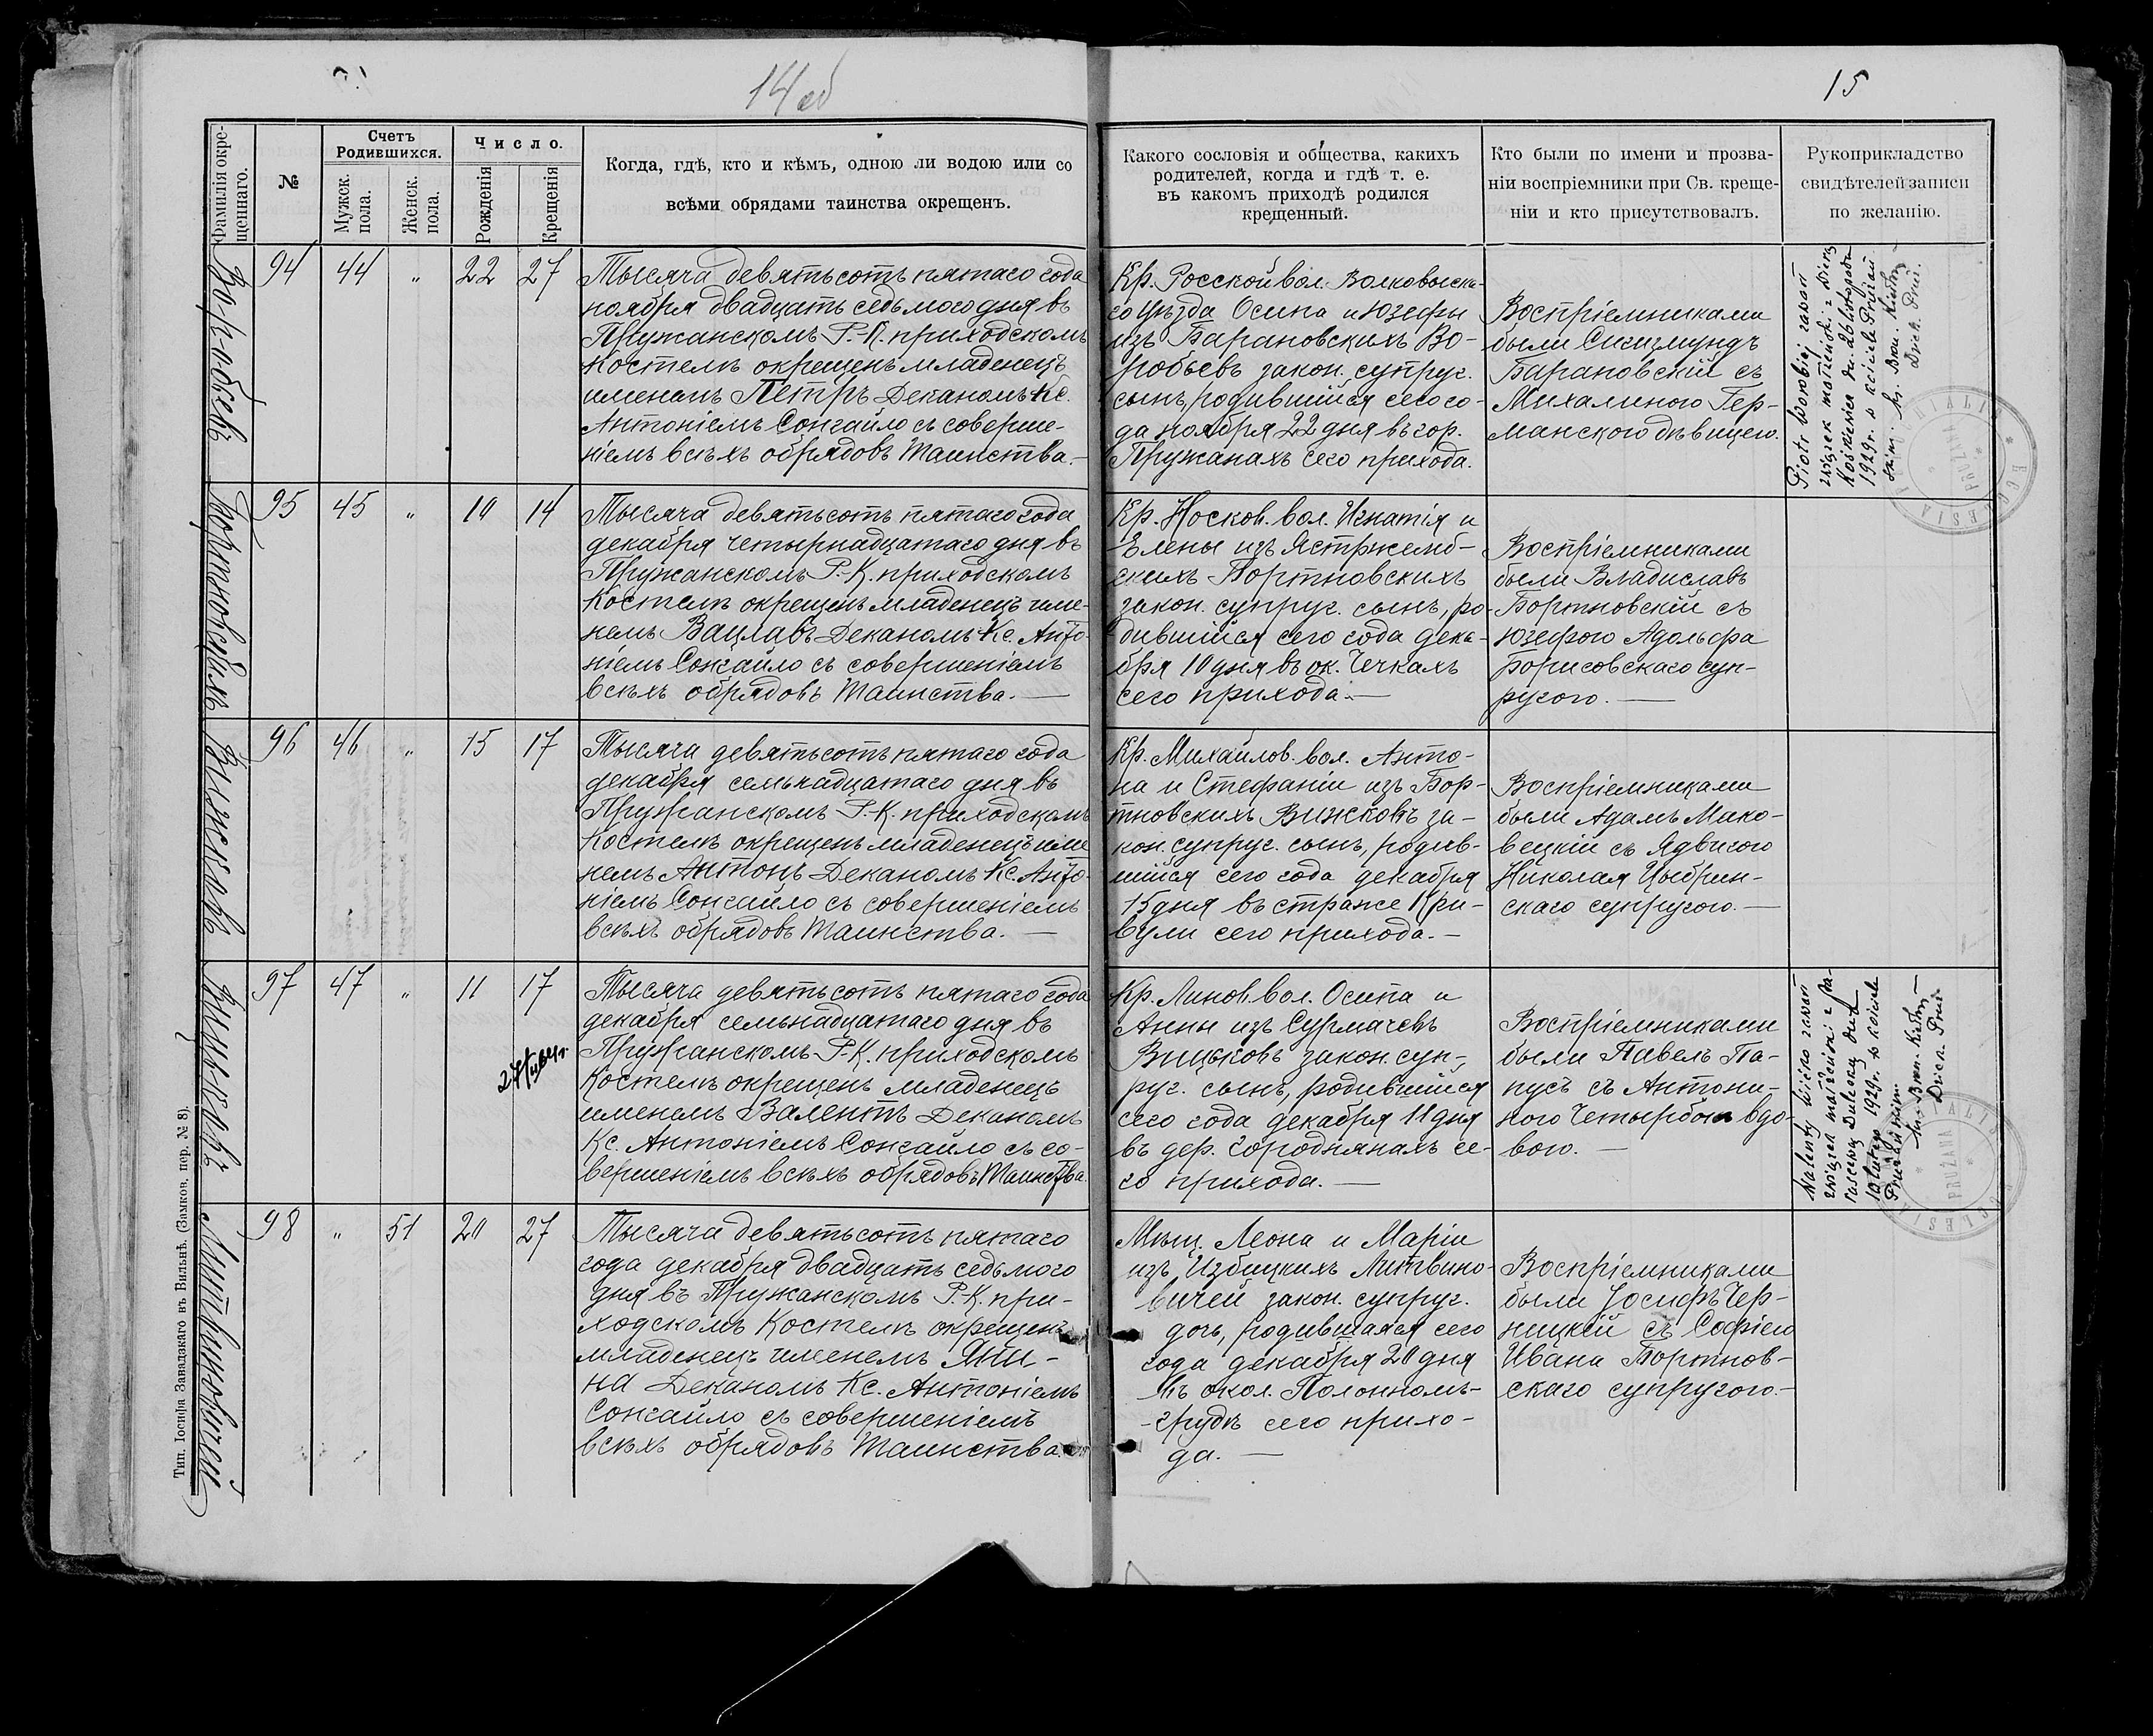 14 об
15
Фамилія окре-
щеннаго.
№
Счетъ
Родившихся.
Мужск.
пола.
Женск.
пола.
Число.
Рожденія
Крещенія
Когда, гдѣ, кто и кѣмъ, одною ли водою или со
всѣми обрядами таинства окрещенъ.
Какого сословія и общества, какихъ
родителей, когда и гдѣ т. е.
въ какомъ приходѣ родился
крещенный.
Кто были по имени и прозва-
ніи воспріемники при Св. креще-
ніи и кто присутствовалъ.
Рукоприкладство
свидѣтелей записи
по желанію.
Воробьевъ
94 44 " 22 27
Тысяча девятьсотъ пятаго года
ноября двадцать седьмого дня въ
Пружанскомъ Р.-К. приходскомъ
Костелѣ окрещенъ младенецъ
именемъ Петръ Деканомъ Кс.
Антоніемъ Сонгайло съ соверше-
ніемъ всѣхъ обрядовъ Таинства.—
Кр. Росской вол. Волковыска-
го уѣзда Осипа и Юзефы
изъ Барановскихъ Во-
робьевъ закон. супруг.
сынъ, родившійся сего го-
да ноября 22 дня въ гор.
Пружанахъ сего прихода.
Воспріемниками
были Сигизмундъ
Барановскій съ
Михалиною Гер-
манскою дѣвицею.
Piotr Worobiej zawarł
związek małżeński z
dn. 26 listopada
1929 r. w kościele Prużań
Бортновскихъ
95 45 " 10 14
Тысяча девятьсотъ пятаго года
декабря четырнадцатаго дня въ
Пружанскомъ Р.-К. приходскомъ
Костелѣ окрещенъ младенецъ име-
немъ Вацлавъ Деканомъ Кс. Анто-
ніемъ Сонгайло съ совершеніемъ
всѣхъ обрядовъ Таинства. —
Кр. Носков. вол. Игнатія и
Елены изъ Ястржемб-
скихъ Бортновскихъ
закон. супруг. сынъ, ро-
дившійся сего года дека-
бря 10 дня въ ок. Чечкахъ
сего прихода. —
Воспріемниками
были Владиславъ
Бортновскій съ
Юзефою Адольфа
Борисовскаго суп-
ругою. —
Вижсковъ
96 46 " 15 17
Тысяча девятьсотъ пятаго года
декабря семьнадцатаго дня въ
Пружанскомъ Р.-К. приходскомъ
Костелѣ окрещенъ младенецъ име-
немъ Антонъ Деканомъ Кс. Анто-
ніемъ Сонгайло съ совершеніемъ
всѣхъ обрядовъ Таинства. —
Кр. Михайлов. вол. Анто-
на и Стефаніи изъ Бор-
тновскихъ Вижсковъ за-
кон. супруг. сынъ, родив-
шійся сего года декабря
15 дня въ страже Кри-
вули сего прихода. —
Воспріемниками
были Адамъ Мако-
вецкій съ Ядвигою
Николая Цыбрин-
скаго супругою. —
Вицьковъ
97 47 " 11 17
Тысяча девятьсотъ пятаго года
декабря семьнадцатаго дня въ
Пружанскомъ Р.-К. приходскомъ
Костелѣ окрещенъ младенецъ
именемъ Валентъ Деканомъ
Кс. Антоніемъ Сонгайло съ со-
вершеніемъ всѣхъ обрядовъ Таинства.
Кр. Линов. вол. Осипа и
Анны изъ Сурмачевъ
Вицьковъ закон. суп-
руг. сынъ, родившійся
сего года декабря 11 дня
въ дер. Городнянахъ се-
го прихода. —
Воспріемниками
были Павелъ Па-
пусъ съ Антони-
ною Четырбок вдо-
вою. —
Walenty Wićko zawarł
związek małżeński z
1929 r. w kościele
Prużańskim
Литвиновичей
98 " 51 20 27
Тысяча девятьсотъ пятаго
года декабря двадцать седьмого
дня въ Пружанскомъ Р.-К. при-
ходскомъ Костелѣ окрещенъ
младенецъ именемъ Яни-
на Деканомъ Кс. Антоніемъ
Сонгайло съ совершеніемъ
всѣхъ обрядовъ Таинства.
Мѣщ. Леона и Маріи
изъ Избицкихъ Литвино-
вичей закон. супруг.
дочь, родившаяся сего
года декабря 20 дня
въ окол. Полонномъ-
-грудѣ сего прихо-
да. —
Воспріемниками
были Іосифъ Чер-
ницкій съ Софіею
Ивана Бортнов-
скаго супругою.—
Тип. Іосифа Завадзкаго въ Вильнѣ. (Замков. пер. № 8).